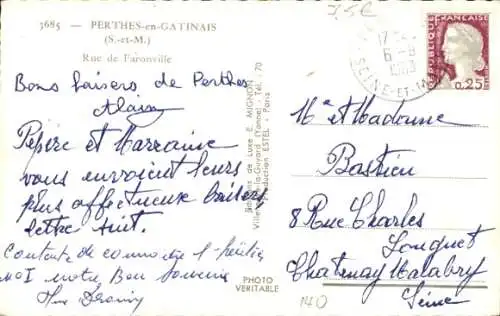 3685 - PERTHES-en-GATINAIS
(S.-et-M.)
Rue de Faronville
Bons baisers de Perthes
Alain
Pépère et Marraine
vous envoient leurs
plus affectueux baisers,
lettre suit.
Contente de
notre Bon Souvenir
Editions de Luxe E. MIGNON
Villeneuve-la-Guyard (Yonne) - Tél. : 70
Production ESTEL - Paris
PHOTO
VERITABLE
REPUBLIQUE FRANÇAISE
0,25
17 H
6 - 8
1963
SEINE-ET-M
Mr et Madame
Bastien
8 Rue Charles
Longuet
Chatenay Malabry
Seine
140